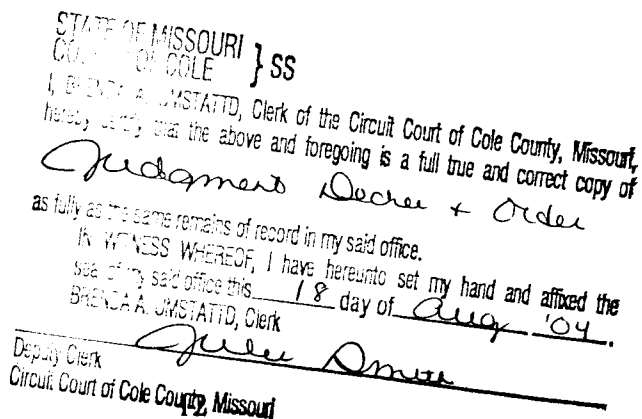 STATE OF MISSOURI
COUNTY OF COLE } SS
I, BRENDA A. UMSTATTD, Clerk of the Circuit Court of Cole County, Missouri,
hereby certify that the above and foregoing is a full true and correct copy of
Judgment Decree + Order
as fully as the same remains of record in my said office.
IN WITNESS WHEREOF, I have hereunto set my hand and affixed the
seal of my said office this 18 day of Aug '04.
BRENDA A. UMSTATTD, Clerk
Julie Smith
Deputy Clerk
Circuit Court of Cole County, Missouri
12